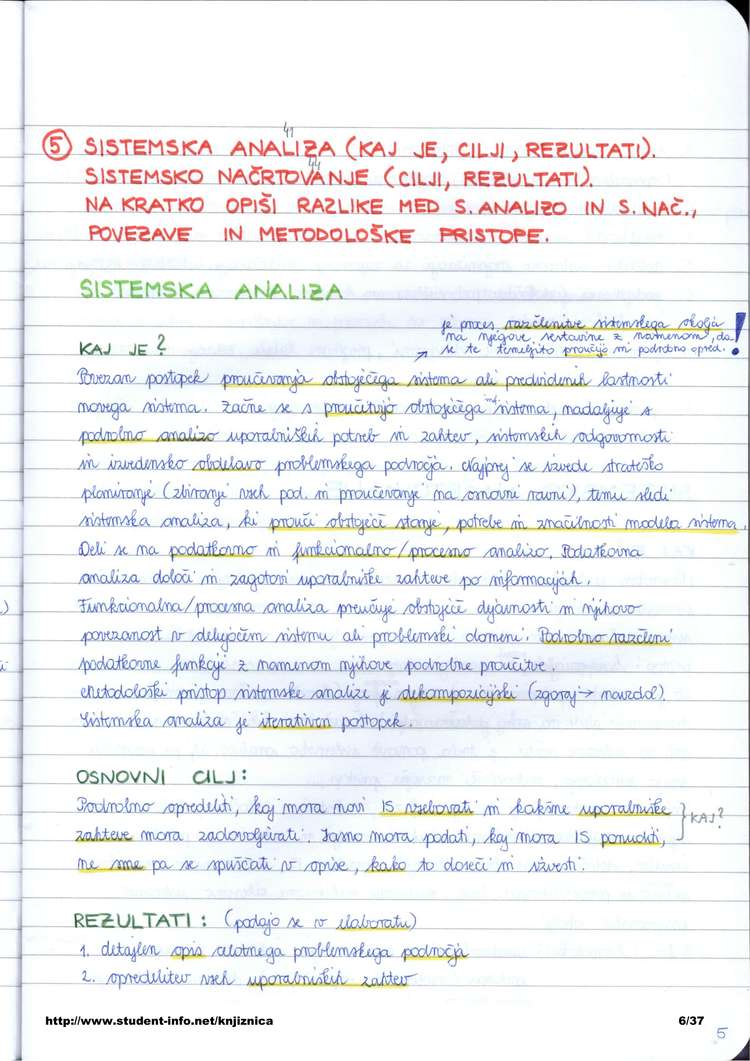 41
⑤ SISTEMSKA ANALIZA (KAJ JE, CILJI, REZULTATI).
44
SISTEMSKO NAČRTOVANJE (CILJI, REZULTATI).
NA KRATKO OPIŠI RAZLIKE MED S. ANALIZO IN S. NAČ.,
POVEZAVE IN METODOLOŠKE PRISTOPE.
SISTEMSKA ANALIZA
je proces razčlenitve sistemskega okolja
na njegove sestavine z namenom, da
se te temeljito proučijo in podrobno opred. !
KAJ JE?
Povezan postopek proučevanja obstoječega sistema ali predvidenih lastnosti
novega sistema. Začne se s proučitvijo obstoječega inf. sistema, nadaljuje s
podrobno analizo uporabniških potreb in zahtev, sistemskih odgovornosti
in izvedensko obdelavo problemskega področja. Najprej se izvede strateško
planiranje (zbiranje vseh pod. in proučevanje na osnovni ravni), temu sledi
sistemska analiza, ki prouči obstoječe stanje, potrebe in značilnosti modela sistema.
Deli se na podatkovno in funkcionalno/procesno analizo. Podatkovna
analiza določi in zagotovi uporabniške zahteve po informacijah.
Funkcionalna/procesna analiza preučuje obstoječe dejavnosti in njihovo
povezanost v delujočem sistemu ali problemski domeni. Podrobno razčleni
podatkovne funkcije z namenom njihove podrobne proučitve.
Metodološki pristop sistemske analize je dekompozicijski (zgoraj → navzdol).
Sistemska analiza je iterativen postopek.
OSNOVNI CILJ:
Podrobno opredeliti, kaj mora novi IS vsebovati in kakšne uporabniške
zahteve mora zadovoljevati. Jasno mora podati, kaj mora IS ponuditi, } KAJ?
ne sme pa se spuščati v opise, kako to doseči in izvesti.
REZULTATI: (podajo se v elaboratu)
1. detajlen opis celotnega problemskega področja
2. opredelitev vseh uporabniških zahtev
http://www.student-info.net/knjiznica 6/37
5